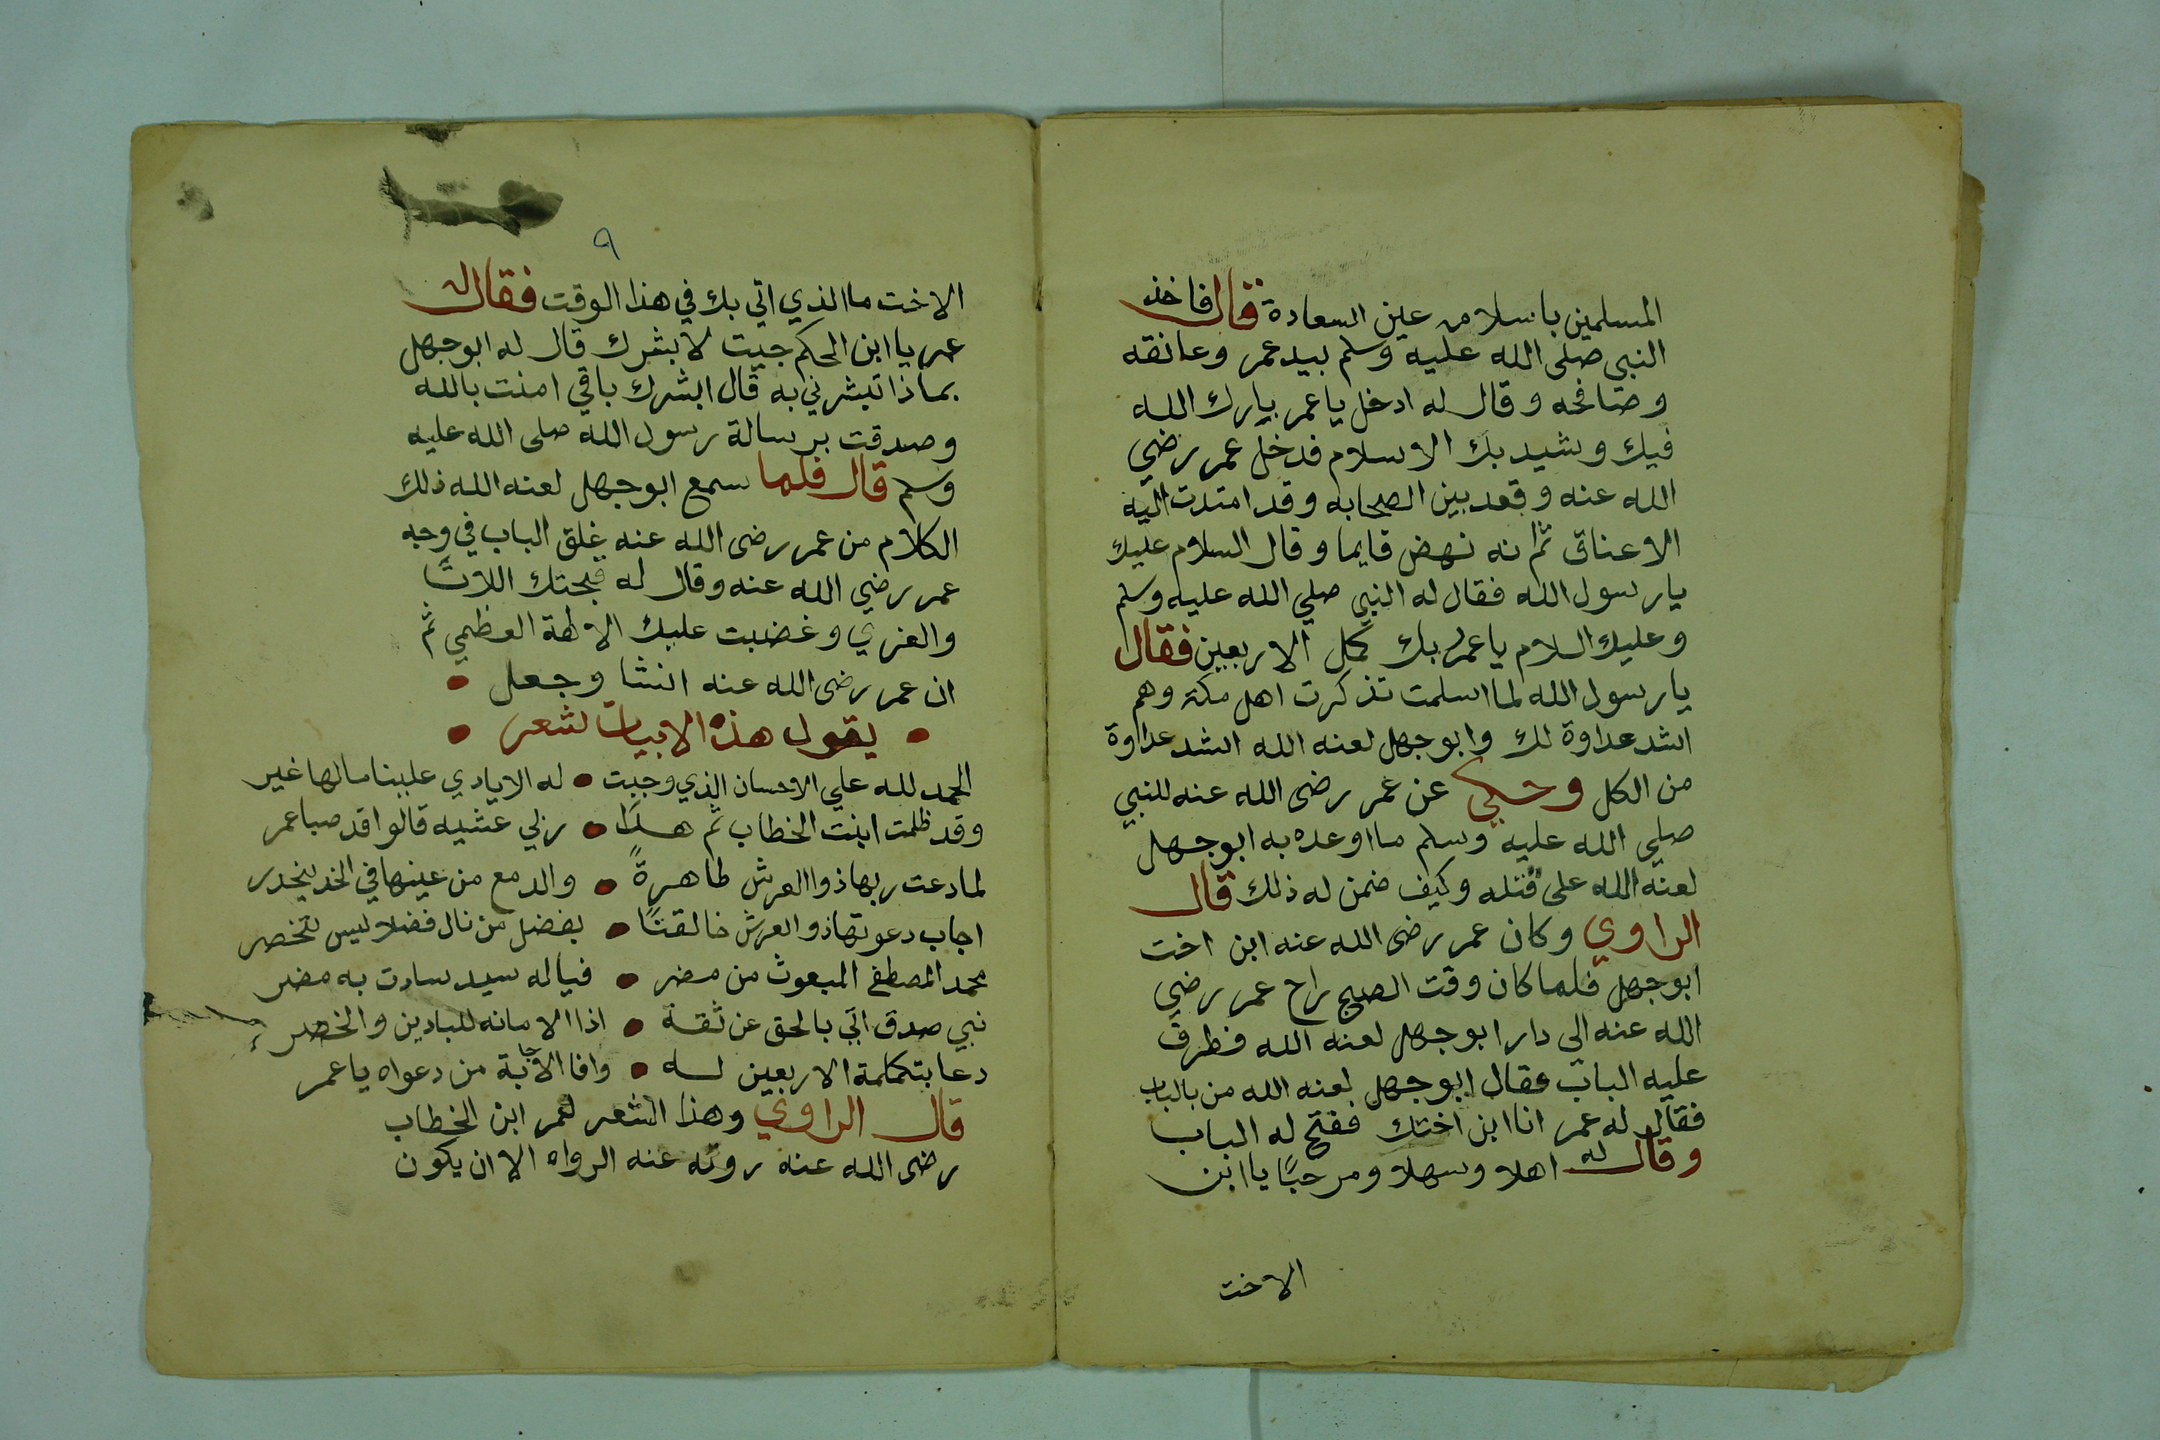 المسلمين باسلام عين السعادة قال فاخذ
النبي صلى الله عليه وسلم بيد عمر وعانقه
وصافحه وقال له ادخل يا عمر بارك الله
فيك وشيد بك الاسلام فدخل عمر رضي
الله عنه وقعد بين الصحابه وقد امتدت اليه
الاعناق ثم انه نهض قايما وقال السلام عليك
يا رسول الله فقال له النبي صلي الله عليه وسلم
وعليك السلام يا عمر بك كمل الاربعين فقال
يا رسول الله لما اسلمت تذكرت اهل مكة وهم
اشد عداوة لك وابو جهل لعنه الله اشد عداوة
من الكل وحكي عن عمر رضى الله عنه للنبي
صلي الله عليه وسلم ما اوعده به ابو جهل
لعنه الله على قتله وكيف ضمن له ذلك قال
الراوي وكان عمر رضى الله عنه ابن اخت
ابو جهل فلما كان وقت الصبح راح عمر رضي
الله عنه الي دار ابو جهل لعنه الله فطرق
عليه الباب فقال ابو جهل لعنه الله من بالباب
فقال له عمر انا ابن اختك ففتح له الباب
وقال له اهلا وسهلا ومرحبًا يا ابن
الاخت
٩
الاخت ما الذي اتي بك في هذا الوقت فقال له
عمر يا ابن الحكم جيت لابشرك قال له ابو جهل
بماذا تبشرني به قال ابشرك باني امنت بالله
وصدقت برسالة رسول الله صلى الله عليه
وسلم قال فلما سمع ابو جهل لعنه الله ذلك
الكلام من عمر رضى الله عنه غلق الباب في وجه
عمر رضي الله عنه وقال له قبحتك اللات
والعزي وغضبت عليك الالهة العظمي ثم
ان عمر رضى الله عنه انشا وجعل
يقول هذه الابيات شعر
الحمد لله علي الاحسان الذي وجبت له الايادي علينا ما لها غير
وقد ظلمت ابنت الخطاب ثم هدا ربي عشيه قالوا قد صبا عمر
لما دعت ربها ذوا العرش طاهرةً والدمع من عينها في الخد ينحدر
اجاب دعوتها ذو العرش خالقنا بفضل من نال فضلا ليس تنحصر
محمد المصطفي المبعوث من مضر فيا له سيد سادت به مضر
نبي صدق اتي بالحق عن ثقة اذا الامانه للبادين والحضر
دعا بتكملة الاربعين له وافا الاجابة من دعواه يا عمر
قال الراوي وهذا الشعر لعمر ابن الخطاب
رضى الله عنه روته عنه الرواه الا ان يكون